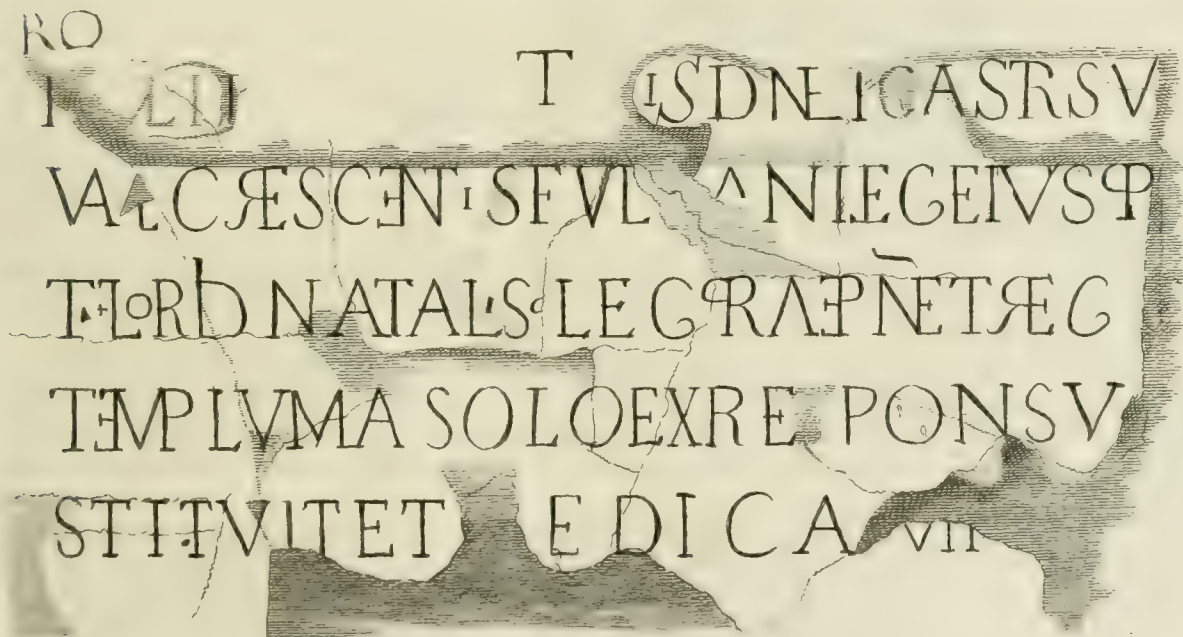 RO
T ISDNLICASTRSV
VALCRESCENTISFVL ANILEGEIVSP
T FLORID NATALIS LEG PRAEPNETREG
TEMPLVMA SOLOEXRE PONSV
STITVITET EDICAVIT